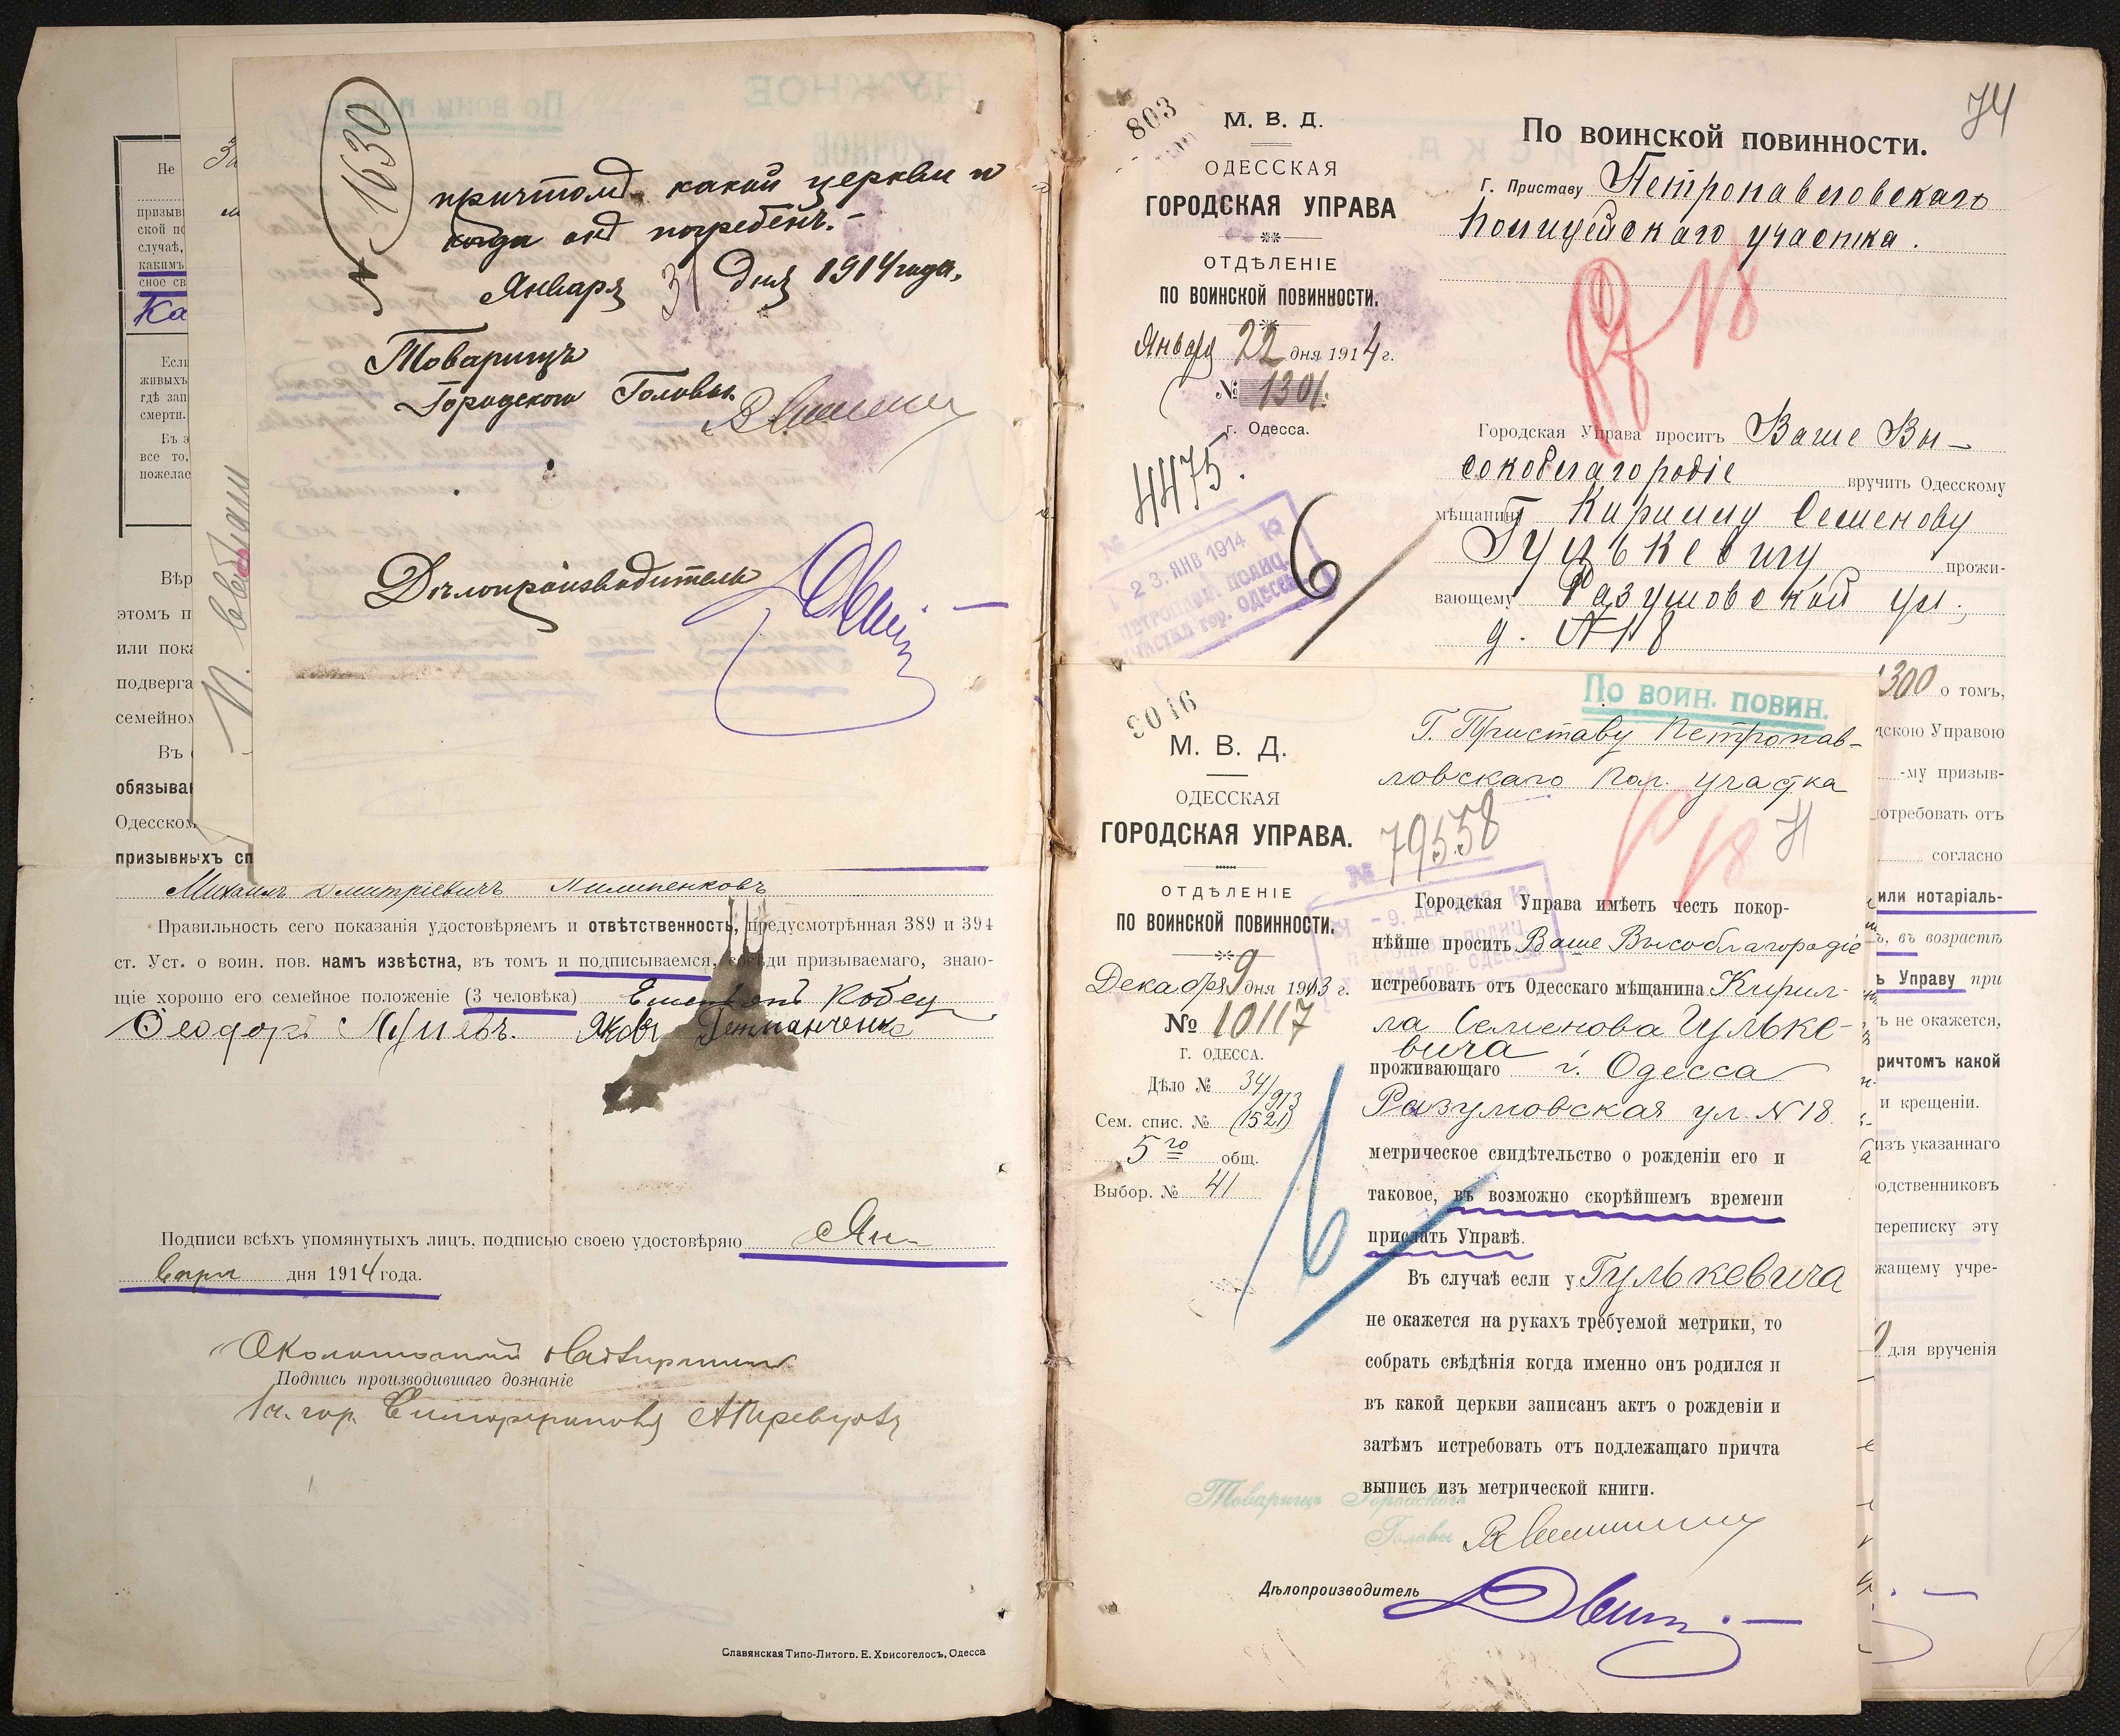 № 1630
причтомъ какой церкви и
когда онъ погребенъ.-
Января 31 дня 1914 года.
Товарищъ
Городского Головы
Дѣлопроизводитель
Не
призыв
ской по
случаѣ,
какимъ
сное св
Ка
Если
живыхъ
гдѣ зап
смерти.
Въ э
все то,
пожелае
Вѣр
этомъ п
или пока
подверга
семейном
Въ
обязыва
Одесском
призывныхъ сп
Михаилъ Дмитріевичъ Пилипенковъ
Правильность сего показанія удостовѣряемъ и отвѣтственность, предусмотрѣнная 389 и 394
ст. Уст. о воин. пов. намъ извѣстна, въ томъ и подписываемся, сосѣди призываемаго, знаю-
щіе хорошо его семейное положеніе (3 человѣка) Емельянъ Кобец
Ѳеодоръ Яковъ Гетманченко
Подписи всѣхъ упомянутыхъ лицъ, подписью своею удостовѣряю Ян-
варя дня 1914 года.
Околоточный надзиратель
Подпись производившаго дознаніе
Славянская Типо-Литогр. Е. Хрисогелосъ, Одесса
803
М. В. Д.
ОДЕССКАЯ
ГОРОДСКАЯ УПРАВА
ОТДѢЛЕНІЕ
ПО ВОИНСКОЙ ПОВИННОСТИ.
Января 22 дня 1914 г.
№ 1301.
г. Одесса.
4475.
23. ЯНВ 1914
ПЕТРОПАВ. ПОЛИЦ.
УЧАСТКА гор. ОДЕССЫ
6
74
По воинской повинности.
Г. Приставу Петропавловскаго
Полицейскаго участка.
18
Городская Управа проситъ Ваше Вы-
сокоблагородіе вручить Одесскому
мѣщанину Кириллу Семенову
Гулькевичу прожи-
вающему Разумовской ул.,
д. № 18
300 о томъ,
дскою Управою
-му призыв-
потребовать отъ
согласно
или нотаріаль-
ъ, въ возрастѣ
ъ Управу при
ъ не окажется,
ричтомъ какой
и крещеніи.
изъ указаннаго
одственниковъ
переписку эту
жащему учре-
для врученія
9046
М. В. Д.
ОДЕССКАЯ
ГОРОДСКАЯ УПРАВА.
ОТДѢЛЕНІЕ
ПО ВОИНСКОЙ ПОВИННОСТИ.
Декабря 9 дня 1913 г.
№ 10117
Г. ОДЕССА.
Дѣло № 34/913
Сем. спис. № (1521)
5го общ.
Выбор. № 41
По воин. повин.
Г. Приставу Петропав-
ловскаго Пол. участка
№ 79558
18
71
- 9. ДЕК 1913
Городская Управа имѣетъ честь покор-
нѣйше просить Ваше Высоблагородіе
истребовать отъ Одесскаго мѣщанина Кирил-
ла Семенова Гульке-
вича
проживающаго г. Одесса
Разумовская ул. № 18
метрическое свидѣтельство о рожденіи его и
таковое, въ возможно скорѣйшемъ времени
прислать Управѣ.
Въ случаѣ если у Гулькевича
не окажется на рукахъ требуемой метрики, то
собрать свѣдѣнія когда именно онъ родился и
въ какой церкви записанъ актъ о рожденіи и
затѣмъ истребовать отъ подлежащаго причта
выпись изъ метрической книги.
Товарищъ Городского
Головы
Дѣлопроизводитель